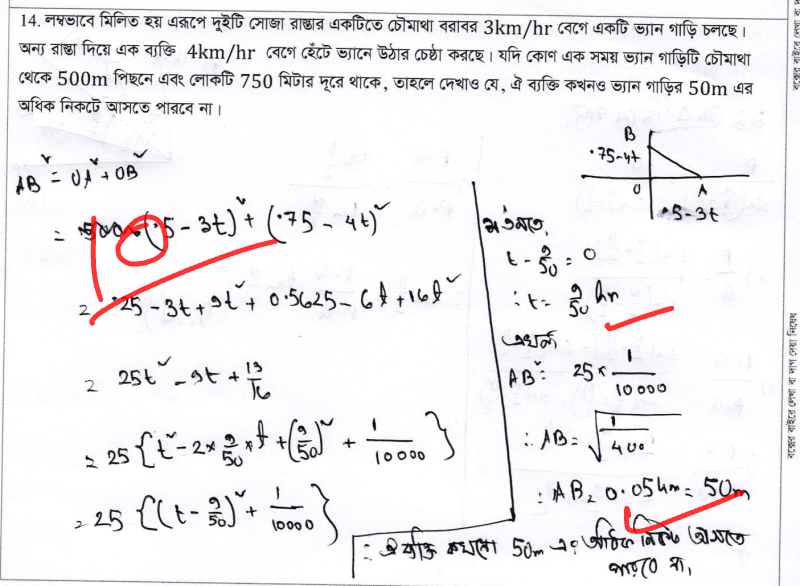 14. লম্বভাবে মিলিত হয় এরূপে দুইটি সোজা রাস্তার একটিতে চৌমাথা বরাবর 3km/hr বেগে একটি ভ্যান গাড়ি চলছে।
অন্য রাস্তা দিয়ে এক ব্যক্তি 4km/hr বেগে হেঁটে ভ্যানে উঠার চেষ্ঠা করছে। যদি কোণ এক সময় ভ্যান গাড়িটি চৌমাথা
থেকে 500m পিছনে এবং লোকটি 750 মিটার দূরে থাকে, তাহলে দেখাও যে, ঐ ব্যক্তি কখনও ভ্যান গাড়ির 50m এর
অধিক নিকটে আসতে পারবে না।
B
.75-4t
0 A
.5-3t
AB² = 0A² + 0B²
= (.5 - 3t)² + (.75 - 4t)²
= .25 - 3t + 9t² + 0.5625 - 6t + 16t²
= 25t² - 9t + 13/16
= 25 { t² - 2 × 9/50 × t + (9/50)² + 1/10000 }
= 25 { (t - 9/50)² + 1/10000 }
শর্তমতে,
t - 9/50 = 0
∴ t = 9/50 hr
এখন
AB² = 25 × 1/10000
∴ AB = √1/400
∴ AB = 0.05km = 50m
∴ ঐ ব্যক্তি কখনো 50m এর অধিক নিকট আসতে
পারবে না,
বক্সের বাইরে লেখা বা দাগ দেয়া নিষেধ